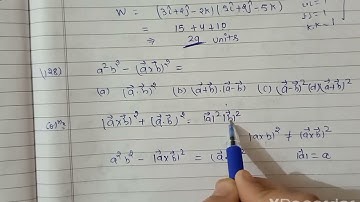 W = (3i+4j-2k)(5i+2j-5k)
= 15+4+10
⇒ 29 units
k.k=1
(128) a²b² - (a⃗×b⃗)² =
(a) (a⃗.b⃗)² (b) (a⃗+b⃗).(a⃗-b⃗) (c) (a⃗-b⃗)² (d) (a⃗+b⃗)²
|a⃗×b⃗|² + (a⃗.b⃗)² = |a⃗|²|b⃗|²
|a×b|² ≠ (a⃗×b⃗)²
a²b² - |a⃗×b⃗|² = (a⃗
|a⃗| = a